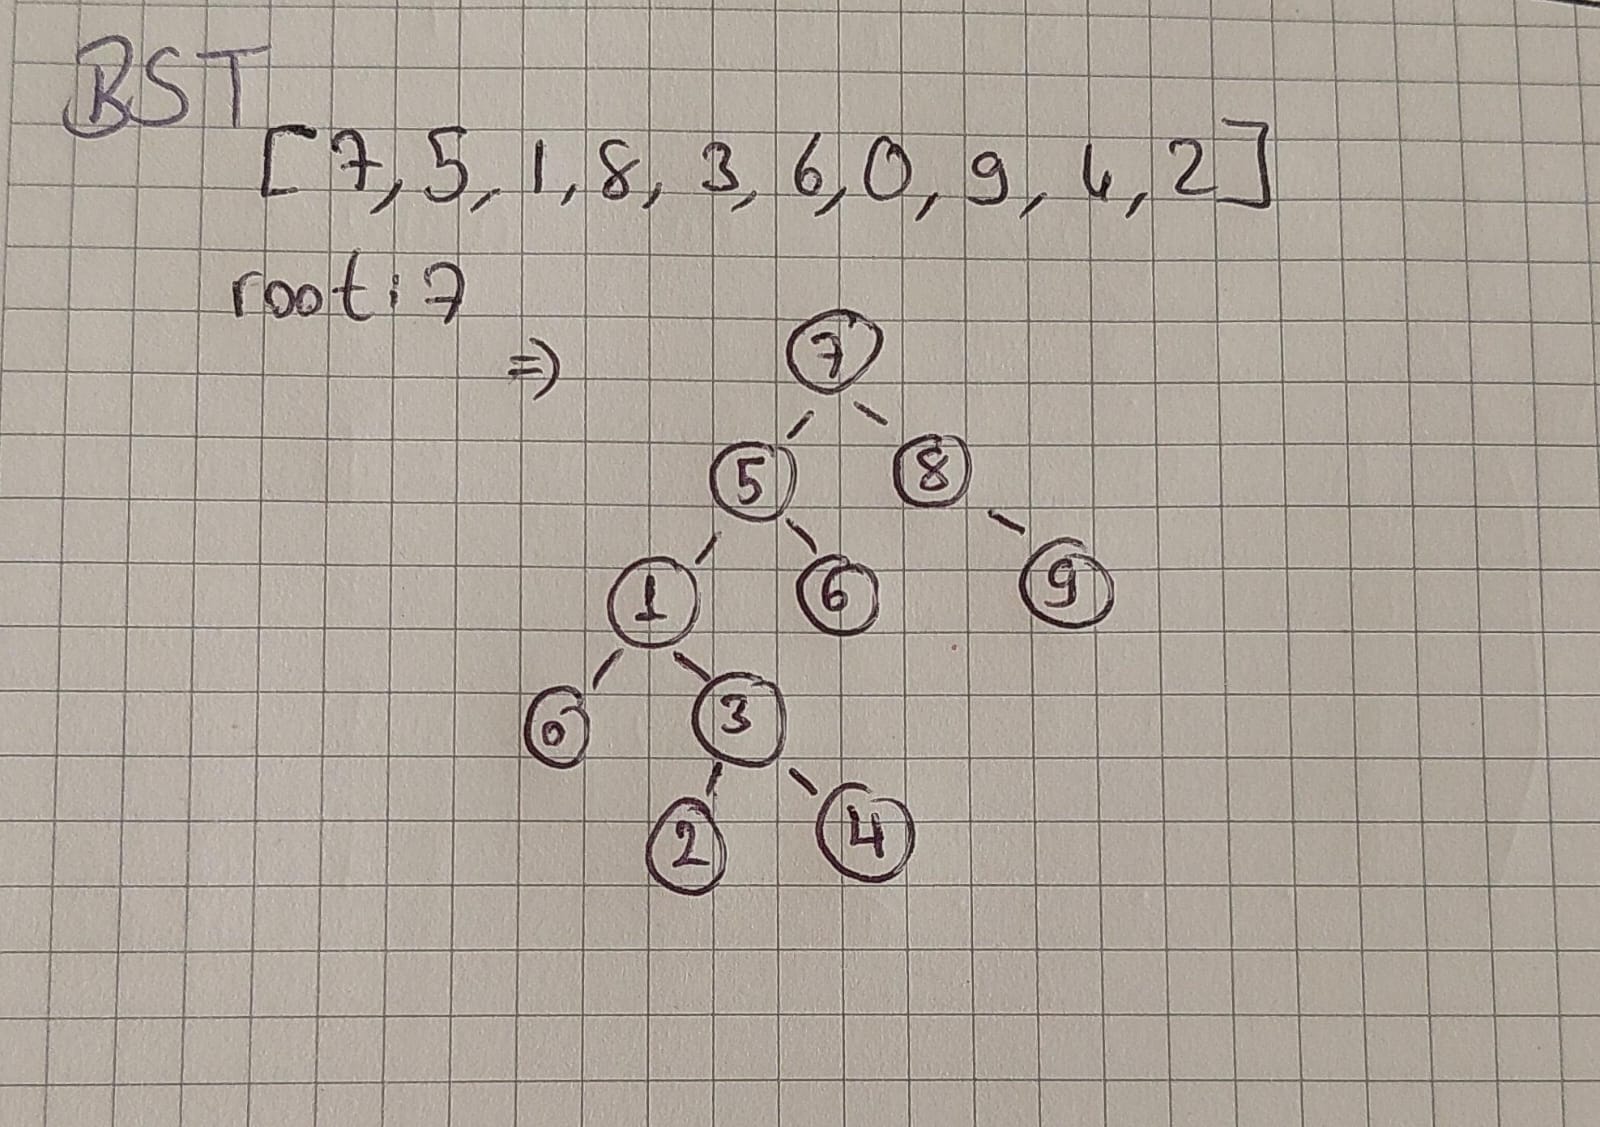 BST
[7, 5, 1, 8, 3, 6, 0, 9, 4, 2]
root: 7
⇒
7
5 8
1 6 9
0 3
2 4